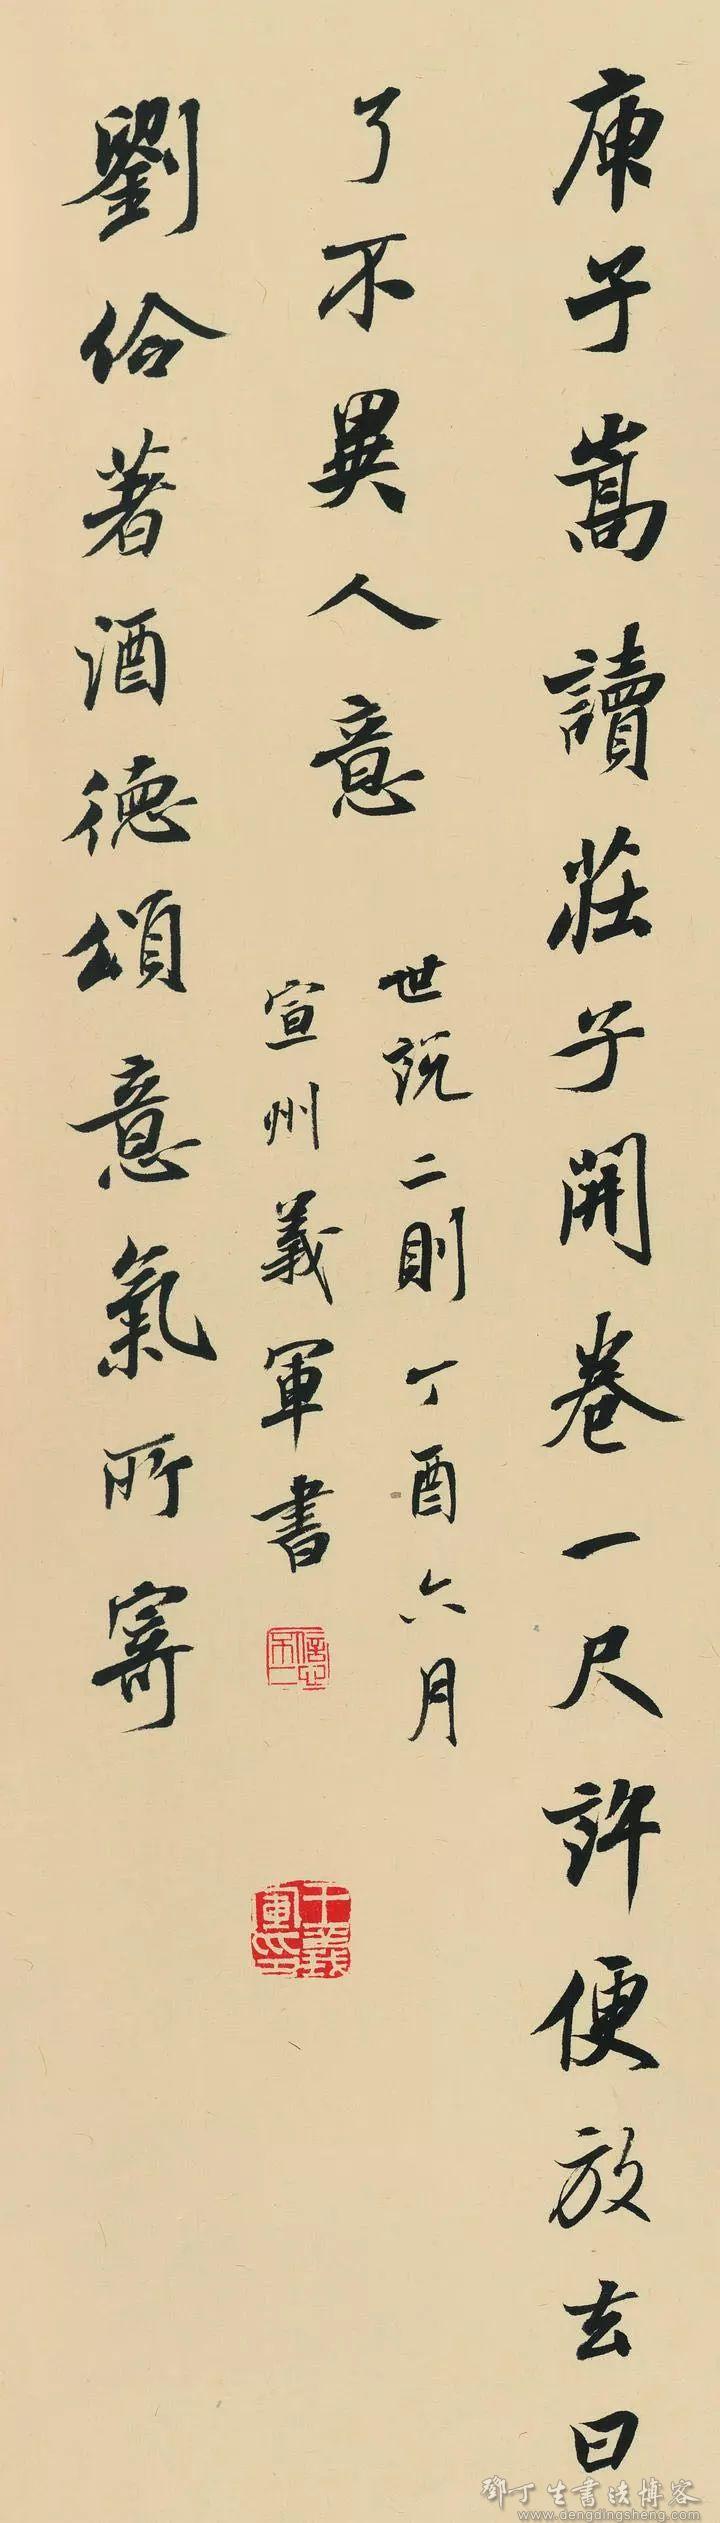 庾子嵩讀莊子開卷一尺許便放去曰
了不異人意
世說二則丁酉六月
宣州義軍書
王義軍印
劉伶著酒德頌意氣所寄
鄧丁生書法博客
www.dengdingsheng.com